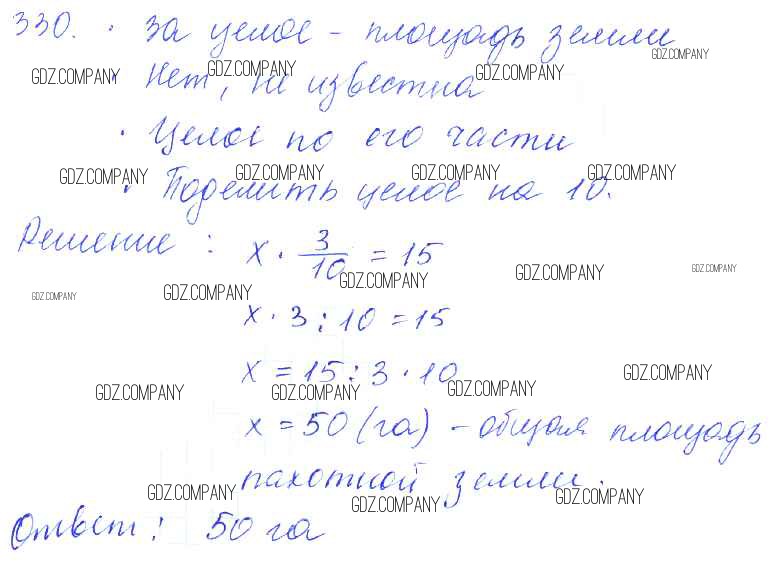 330. · За целое – площадь земли
GDZ.COMPANY
GDZ.COMPANY · Нет, не известна GDZ.COMPANY GDZ.COMPANY
· Целое по его части
GDZ.COMPANY GDZ.COMPANY GDZ.COMPANY GDZ.COMPANY
· Поделить целое на 10.
Решение : x · 3/10 = 15
GDZ.COMPANY GDZ.COMPANY GDZ.COMPANY
GDZ.COMPANY GDZ.COMPANY
x · 3 : 10 = 15
x = 15 : 3 · 10 GDZ.COMPANY
GDZ.COMPANY GDZ.COMPANY GDZ.COMPANY
x = 50 (га) – общая площадь
пахотной земли.
GDZ.COMPANY GDZ.COMPANY GDZ.COMPANY
Ответ: 50 га